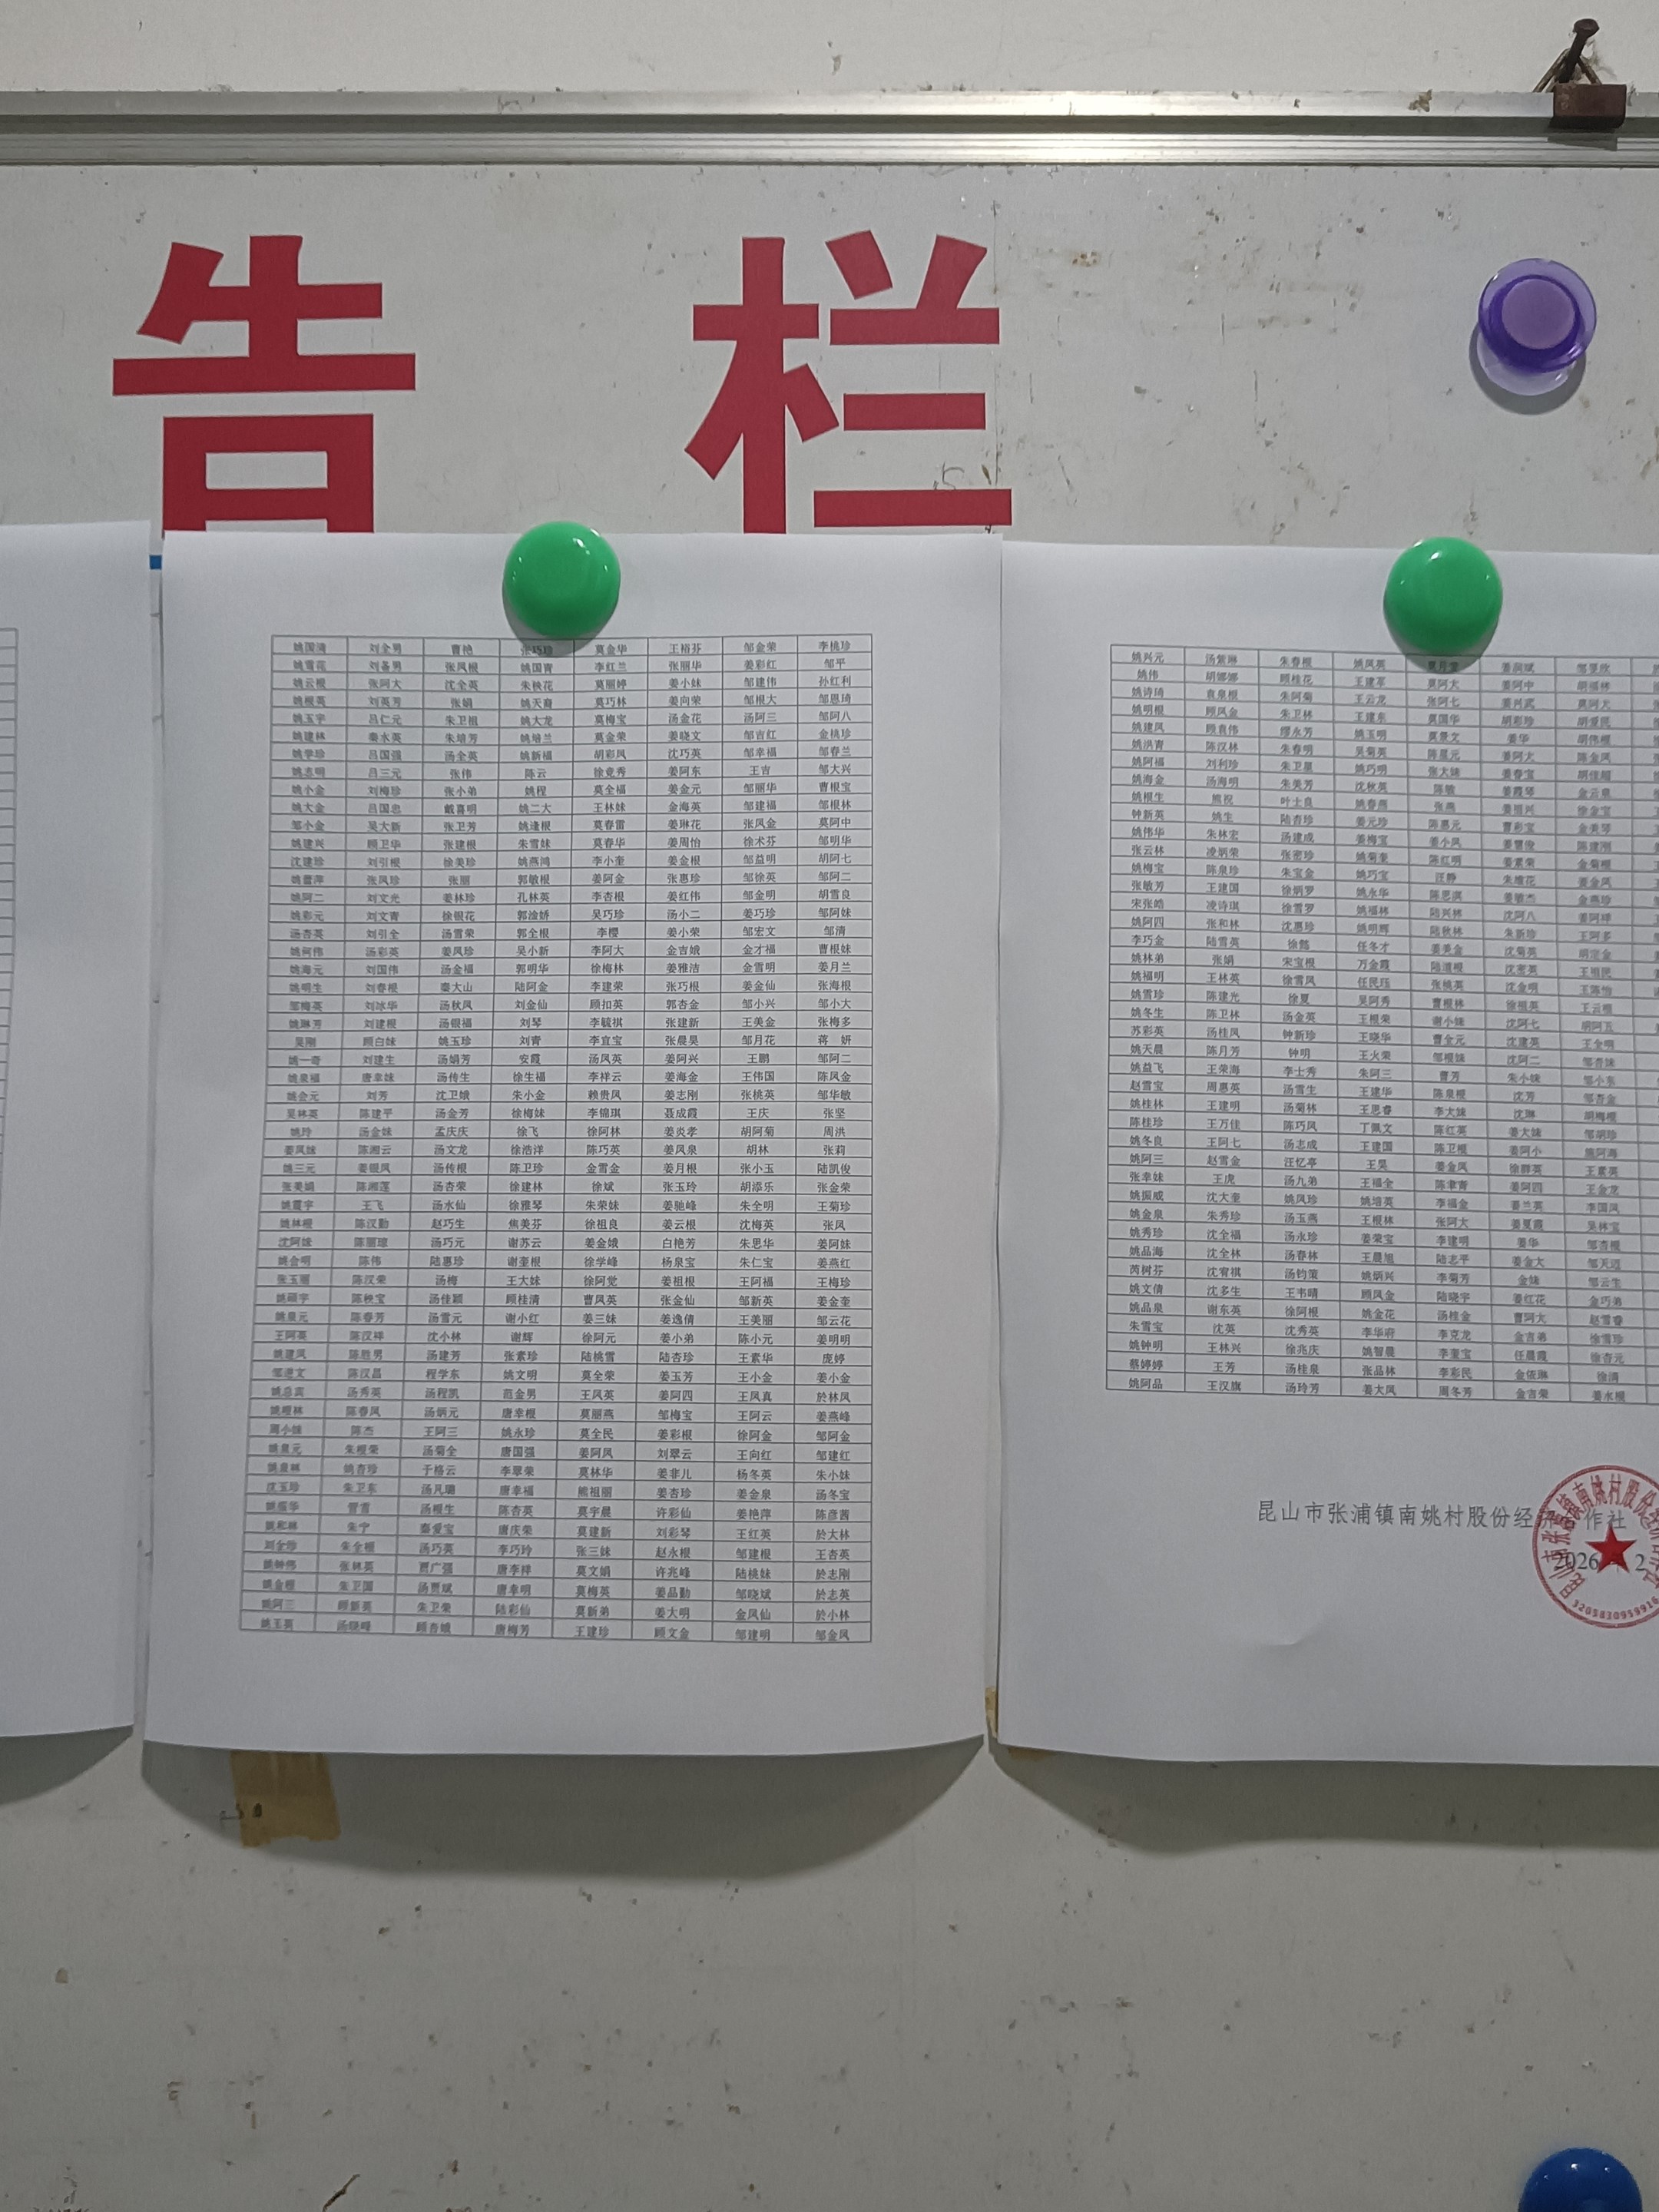 告 栏
姚国清 刘全男 曹艳 张巧珍 莫金华 王裕芬 邹金荣 李桃珍
姚雪花 刘备男 张凤根 姚国青 李红兰 张丽华 姜彩红 邹平
姚云根 张阿大 沈全英 朱秧花 莫丽婷 姜小妹 邹建伟 孙红利
姚根英 刘英芳 张娟 姚天裔 莫巧林 姜向荣 邹根大 邹恩琦
姚玉宇 吕仁元 朱卫祖 姚大龙 莫梅宝 汤金花 汤阿三 邹阿八
姚建林 秦水英 朱培芳 姚培兰 莫金荣 姜晓文 邹吉红 金桃珍
姚学珍 吕国强 汤全英 姚新福 胡彩凤 沈巧英 邹幸福 邹春兰
姚志明 吕三元 张伟 陈云 徐竞秀 姜阿东 王吉 邹大兴
姚小金 刘梅珍 张小弟 姚程 莫全福 姜金元 邹丽华 曹根宝
姚大金 吕国忠 戴喜明 姚二大 王林妹 金海英 邹建福 邹根林
邹小金 吴大新 张卫芳 姚逢根 莫春雷 姜琳花 张凤金 莫阿中
姚建兴 顾卫华 张建根 朱雪妹 莫春华 姜周怡 徐术芬 邹明华
沈建珍 刘引根 徐美珍 姚燕鸿 李小奎 姜金根 邹益明 胡阿七
姚雪萍 张凤珍 张丽 郭敏根 姜阿金 张惠珍 邹徐英 邹阿二
姚阿二 刘文光 姜林珍 孔林英 李杏根 姜红伟 邹金明 胡雪良
姚彩元 刘文青 徐银花 郭淦娇 吴巧珍 汤小二 姜巧珍 邹阿妹
汤杏英 刘引全 汤雪荣 郭全根 李樱 姜小荣 邹宏文 邹清
姚柯伟 汤彩英 姜凤珍 吴小新 李阿大 金吉娥 金才福 曹根妹
姚海元 刘国伟 汤金福 郭明华 徐梅林 姜雅洁 金雪明 姜月兰
姚明生 刘春根 秦大山 陆阿金 李建荣 张巧根 姜金仙 张海根
邹梅英 刘冰华 汤秋凤 刘金仙 顾扣英 郭杏金 邹小兴 邹小大
姚琳芳 刘建根 汤银福 刘琴 李毓祺 张建新 王美金 张梅多
吴刚 顾白妹 姚玉珍 刘青 李宜宝 张晨昊 邹月花 蒋 妍
姚一奇 刘建生 汤娟芳 安霞 汤凤英 姜阿兴 王鹏 邹阿二
姚泉福 唐幸妹 汤传生 徐生福 李祥云 姜海金 王伟国 陈凤金
姚会元 刘芳 沈卫娥 朱小金 赖贵凤 姜志刚 张桃英 邹华敏
吴林英 陈建平 汤金芳 徐梅妹 李锦琪 聂成霞 王庆 张坚
姚玲 汤金妹 孟庆庆 徐飞 徐阿林 姜炎孝 胡阿菊 周洪
姜凤妹 陈湘云 汤文龙 徐浩洋 陈巧英 姜风泉 胡林 张莉
姚三元 姜银凤 汤传根 陈卫珍 金雪金 姜月根 张小玉 陆凯俊
张美娟 陈湘莲 汤杏荣 徐建林 徐斌 张玉玲 胡添乐 张金荣
姚震宇 王飞 汤水仙 徐雅琴 朱荣妹 姜驰峰 朱全明 王菊珍
姚林根 陈汉勤 赵巧生 焦美芬 徐祖良 姜云根 沈梅英 张凤
沈阿妹 陈丽琼 汤巧元 谢苏云 姜金娥 白艳芳 朱思华 姜阿妹
姚会明 陈伟 陆惠珍 谢奎根 徐学峰 杨泉宝 朱仁宝 姜燕红
张玉丽 陈汉荣 汤梅 王大妹 徐阿觉 姜祖根 王阿福 王梅珍
姚硕宇 陈秧宝 汤佳颖 顾桂清 曹凤英 张金仙 邹新英 姜金奎
姚泉元 陈春芳 汤雪元 谢小红 姜三妹 姜逸倩 王美丽 邹云花
王阿英 陈汉祥 沈小林 谢辉 徐阿元 姜小弟 陈小元 姜明明
姚建凤 陈胜男 汤建芳 张素珍 陆桃雪 陆杏珍 王素华 庞婷
邹逊文 陈汉昌 程学东 姚文明 莫全荣 姜玉芳 王小金 姜小金
姚总宾 汤秀英 汤程凯 范金男 王凤英 姜阿四 王凤真 於林凤
姚根林 陈春凤 汤炳元 唐幸根 莫丽燕 邹梅宝 王阿云 姜燕峰
周小妹 陈杰 王阿三 姚永珍 莫全民 姜彩根 徐阿金 邹阿金
姚泉元 朱根荣 汤菊全 唐国强 姜阿凤 刘翠云 王向红 邹建红
姚泉林 姚杏珍 于格云 李翠荣 莫林华 姜非儿 杨冬英 朱小妹
沈玉珍 朱卫东 汤凡璐 唐幸福 熊祖丽 姜杏珍 姜金泉 汤冬宝
姚振华 贺雪 汤根生 陈杏英 莫宇晨 许彩仙 姜艳萍 陈彦茜
姚和林 朱宁 秦爱宝 唐庆荣 莫建新 刘彩琴 王红英 於大林
刘金珍 朱全根 汤巧英 李巧玲 张三妹 赵永根 邹建根 王杏英
姚钟伟 张林英 贾广强 唐李祥 莫文娟 许兆峰 陆桃妹 於志刚
姚金根 朱卫国 汤贾斌 唐幸明 莫梅英 姜品勤 邹晓斌 於志英
姚阿三 顾新英 朱卫荣 陆彩仙 莫新弟 姜大明 金凤仙 於小林
姚玉英 汤晓峰 顾杏娥 唐梅芳 王建珍 顾文金 邹建明 邹金凤
姚兴元 汤紫琳 朱春根 姚凤英 姜润斌
姚伟 胡娜娜 顾桂花 王建苹 莫阿大 姜阿中 胡福林
姚诗琦 袁泉根 朱阿菊 王云龙 张阿七 姜兴武 莫阿大
姚明根 顾凤金 朱卫林 王建东 莫国华 胡彩珍 胡爱民
姚建凤 顾袁伟 缪永芳 姚玉明 莫景文 姜华 胡伟根
姚洪青 陈汉林 朱春明 吴菊英 陈星元 姜阿大 陈金凤
姚阿福 刘利珍 朱卫星 姚巧明 张大妹 姜春宝 胡佳超
姚海金 汤海明 朱美芳 沈秋英 陈敏 姜霞琴 金云泉
姚根生 熊祝 叶士良 姚春燕 张燕 姜祖兴 徐金宝
钟新英 姚生 陆杏珍 姜元珍 陈惠元 曹彩宝 金美琴
姚伟华 朱林宏 汤建成 姜梅宝 姜小凤 姜慧俊 陈建刚
张云林 凌炳荣 张密珍 姚菊奎 陈红明 姜素荣 金菊根
姚梅宝 陈泉珍 朱宝金 姚巧宝 汪静 朱培花 姜金凤
张敏芳 王建国 徐炳罗 姚永华 陈思淇 姜敏杰 金燕珍
宋张皓 凌诗琪 徐雪罗 姚福林 陆兴林 沈阿八 姜阿祥
姚阿四 张和林 沈惠珍 姚明辉 陆秋林 朱新珍 王阿多
李巧金 陆雪英 徐懿 任冬才 姜美金 沈菊英 胡定金
姚林弟 张娟 宋宝根 万金霞 陆道根 沈密英 王祖民
姚福明 王林英 徐雪凤 任民珏 张桃英 沈金明 王陈怡
姚雪珍 陈建光 徐夏 吴阿秀 曹根林 徐祖英 王云根
姚冬生 陈卫林 汤金英 王根荣 谢小妹 沈阿七 胡阿五
苏彩英 汤桂凤 钟新珍 王晓华 曹金元 沈建英 王全明
姚天晨 陈月芳 钟明 王火荣 邹根妹 沈阿二 邹杏妹
姚益飞 王荣海 李士秀 朱阿三 曹芳 朱小妹 邹小东
赵雪宝 周惠英 汤雪生 王建华 陈泉根 沈芳 邹杏金
姚桂林 王建明 汤菊林 王思睿 李大妹 沈琳 胡梅根
陈桂珍 王万佳 陈巧凤 丁佩文 陈红英 姜大妹 邹胡珍
姚冬良 王阿七 汤志成 王建国 陈卫根 姜阿小 熊阿海
姚阿三 赵雪金 汪忆亭 王昊 姜金凤 徐群英 王素英
张幸妹 王虎 汤九弟 王福全 陈聿青 姜阿四 王金龙
姚振威 沈大奎 姚凤珍 姚培英 李福金 姜兰英 李国凤
姚金泉 朱秀珍 汤玉燕 王根林 张阿大 姜夏霞 吴林宝
姚秀珍 沈全福 汤永珍 姜荣宝 李建明 姜华 邹杏根
姚品海 沈全林 汤春林 王晨旭 陆志平 姜金大 邹天迈
芮树芬 沈宥祺 汤钧策 姚炳兴 李菊芳 金妹 邹云生
姚文倩 沈多生 王韦晴 顾凤金 陆晓宇 姜红花 金巧弟
姚品泉 谢东英 徐阿根 姚金花 汤桂金 曹阿大 赵雪睿
朱雪宝 沈英 沈秀英 李华府 李克龙 金吉弟 徐雪珍
姚钟明 王林兴 徐兆庆 姚智晨 李奎宝 任晨霞 徐杏元
蔡婷婷 王芳 汤桂泉 张品林 李彩民 金依琳 徐清
姚阿品 王汉旗 汤玲芳 姜大凤 周冬芳 金吉荣 姜水根
昆山市张浦镇南姚村股份经济合作社
2026 2
3205830959916